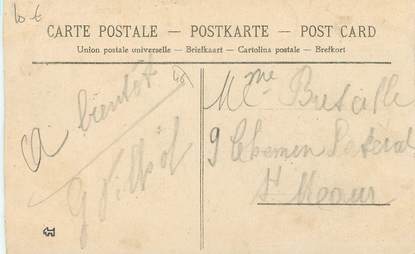 10 €
CARTE POSTALE — POSTKARTE — POST CARD
Union postale universelle — Briefkaart — Cartolina postale — Brefkort
A bientôt
Mme
9 Chemin
St Maur